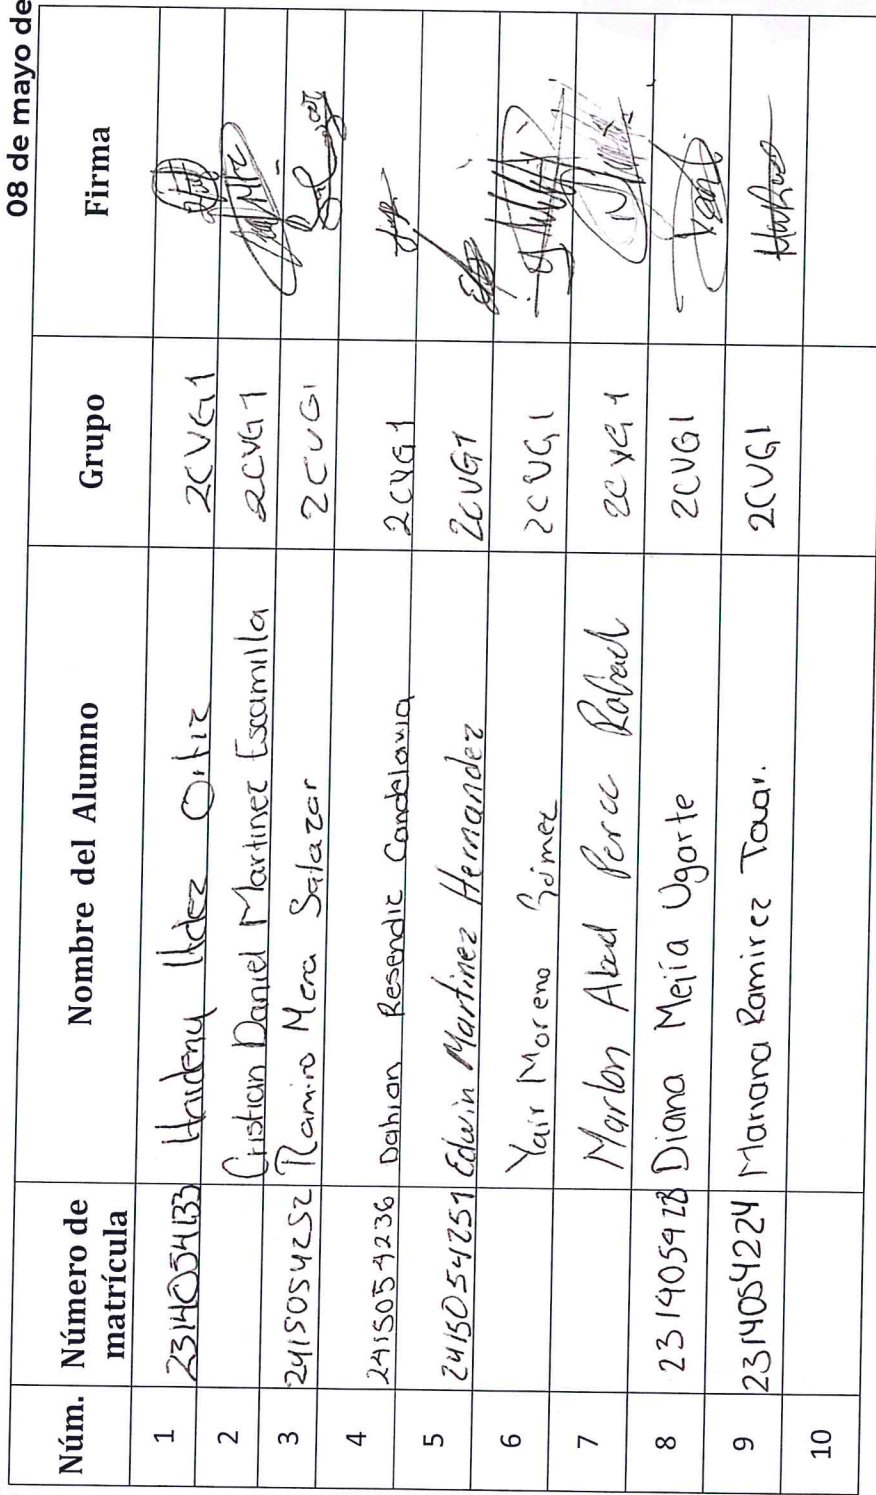 08 de mayo de
Núm. Número de matrícula Nombre del Alumno Grupo Firma
1 2314054133 Hdez Ortiz 2CVG1
2 Cristian Daniel Martinez Escamilla 2CVG1
3 2415054252 Ramiro Mera Salazar 2CVG1
4 2415054236 Dahian Resendiz Candelaria 2CVG1
5 2415054251 Edwin Martinez Hernandez 2CVG1
6 Yair Moreno Gómez 2CVG1
7 Marlon Abad Perez Rafael 2CVG1
8 Diana Mejía Ugarte 2CVG1
9 2314054224 Mariana Ramirez Tovar. 2CVG1
10